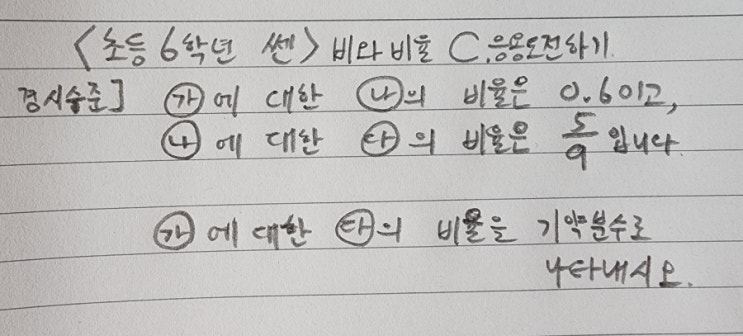 <초등 6학년 쎈> 비와 비율 C.응용도전하기.
경시수준] ㉮에 대한 ㉯의 비율은 0.6이고,
㉯에 대한 ㉰의 비율은 5/9 입니다.
㉮에 대한 ㉰의 비율을 기약분수로
나타내시오.